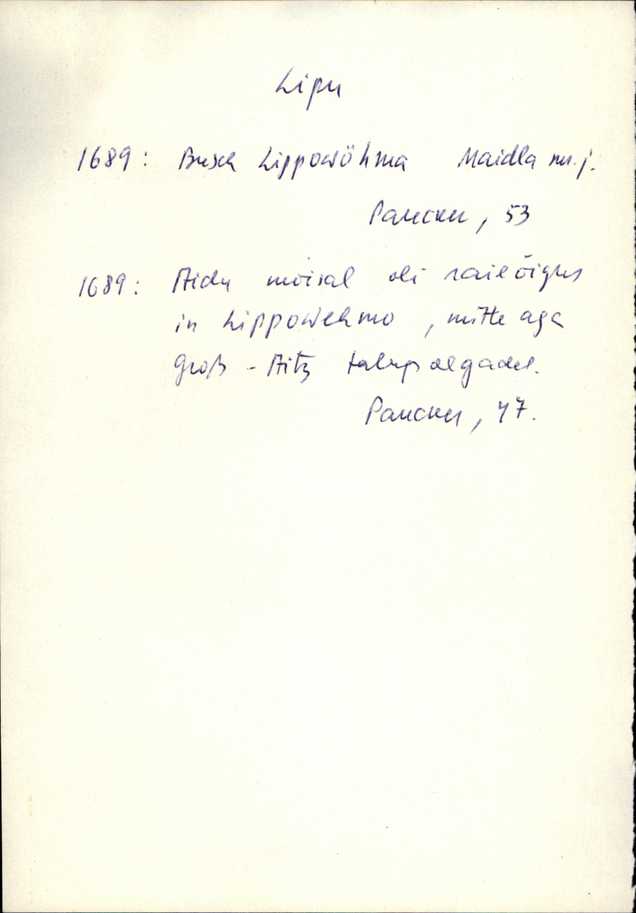 Lipu
1689: Busch Lippowöhma Maidla m. j.
Paucker, 53
1689: Aidu mõisal oli raieõigus
in Lippowehmo, mitte aga
Groß-Aitz talupoegadel.
Paucker, 47.